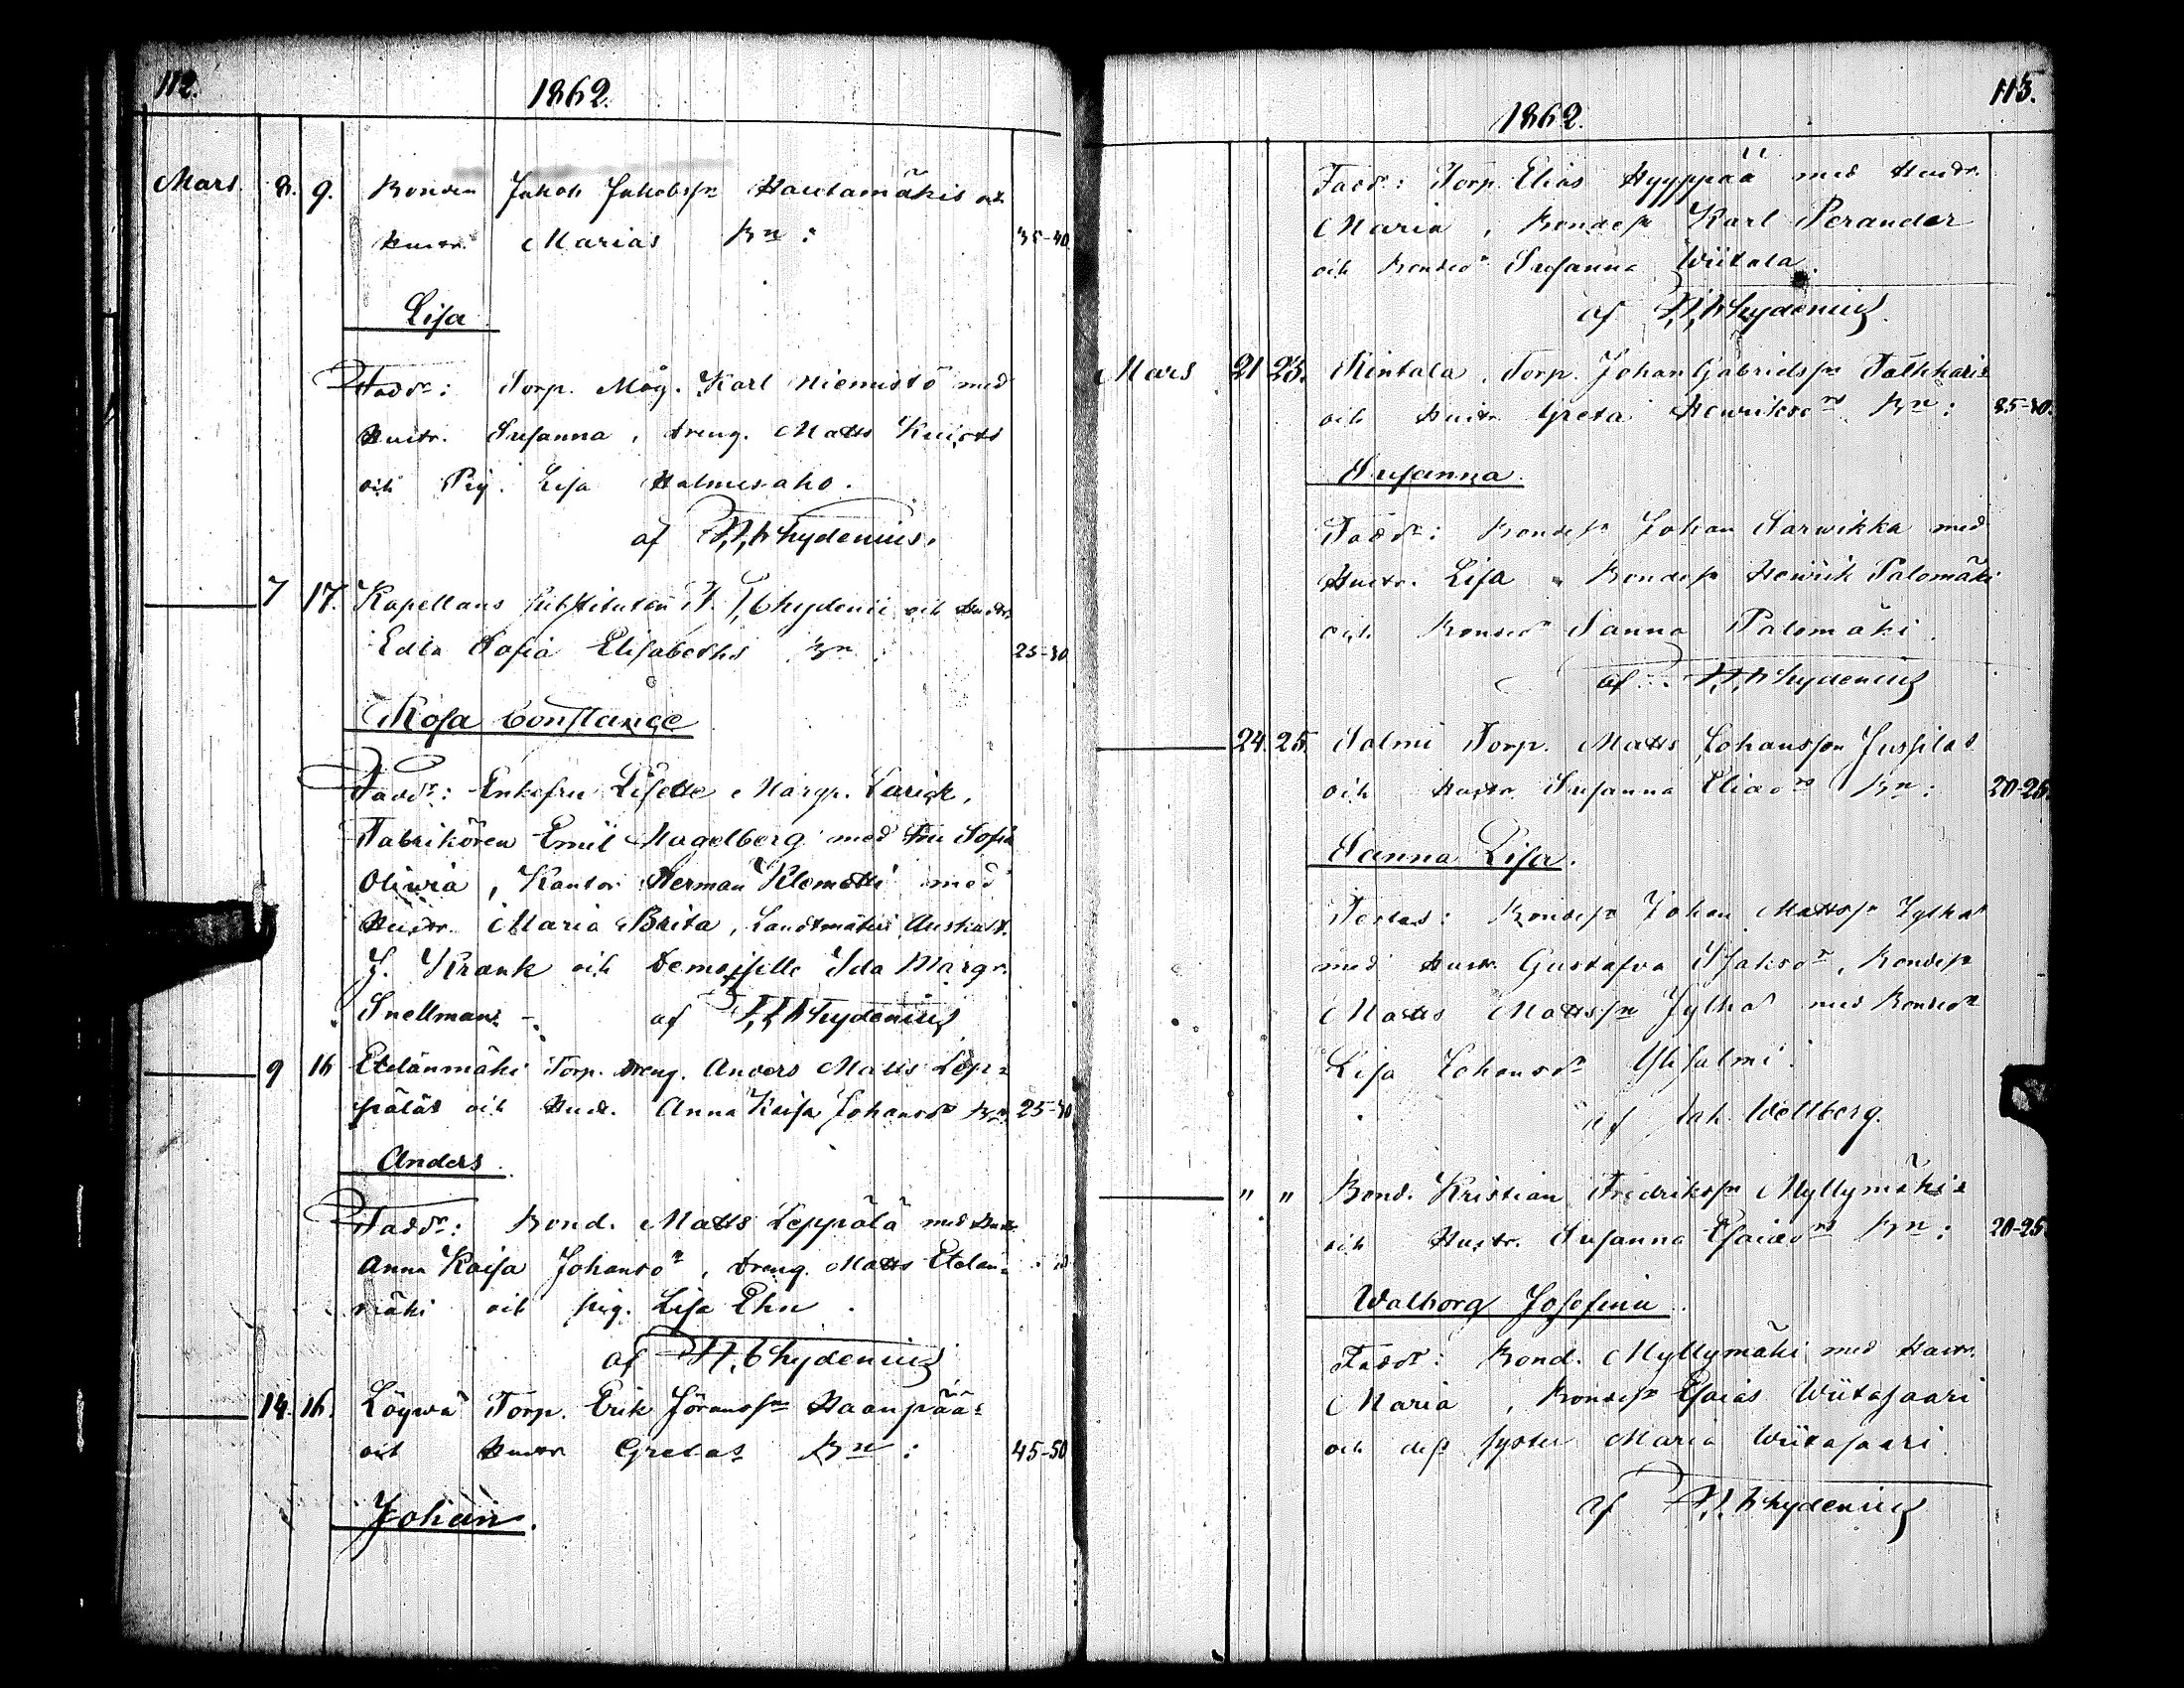 112.
1862.
Mars. 8. 9. Bonden Jakob Jakobssn Hautamäkis och
Hustr. Marias Bn: 35-40.
Lisa
Fadd: Torp. Måg. Karl Niemistö med
Hustr. Susanna, dreng. Matts Kuists
och Pig. Lisa Halmesaho.
af Chydenius.
7 17. Kapellans Substituten Chydenii och Hustr.
Edla Sofia Elisabeths Bn: 25-30
Rosa Constance
Fadd: Enkefru Lisette Margr. Larick,
Fabrikören Emil Hagelberg med Fru Sofia
Oliwia, Kantor Herman Klemetti med
Hustr. Maria Brita, Landtmäteri Auskult.
J. Krank och Demoiselle Ida Margr.
Snellman. af Chydenius
9 16 Etelänmäki Torp. dreng. Anders Matts Lep-
päläs och Hust. Anna Kaisa Johansdr Bn: 25-30
Anders
Fadd: Bond. Matts Leppälä med Hustr
Anna Kaisa Johansdr, dreng. Matts Etelän-
mäki och pig. Lisa Ehn.
af Chydenius
14. 16. Löywä Torp. Erik Göranssn Haanpääs
och Hustr Gretas Bn: 45-50
Johan.
113.
1862.
Fadd: Torp. Elias Hyyppää med Hustr.
Maria, Bondesn Karl Perander
och Bonded Susanna Wiitala.
af Chydenius.
Mars 21 23. Rintala, Torp. Johan Gabrielssn Palkkaris
och Hustr Greta Henriksds Bn: 25-30.
Susanna.
Fadd: Bondesn Johan Sarwikka med
Hustr. Lisa, Bondesn Henrik Palomäki
och Bonded Sanna Palomäki.
af Chydenius
24. 25. Salmi Torp. Matts Johansson Jussilas
och Hustr Susanna Eliasds Bn: 20-25.
Sanna Lisa.
Testes: Bondesn Johan Mattssn Jylhä
med Hustr. Gustafva Isaksdr, Bondesn
Matts Mattssn Jylhä med Bonded
Lisa Johansdr Ylisalmi.
af Jak. Wellberg.
" " Bond. Kristian Fredrikssn Myllymäkis
och Hustr. Susanna Esaiasds Bn: 20-25.
Walborg Josefina.
Fadd: Bond. Myllymäki med Hustr.
Maria, Bondesn Esaias Wiitasaari
och dess syster Maria Wiitasaari.
af Chydenius